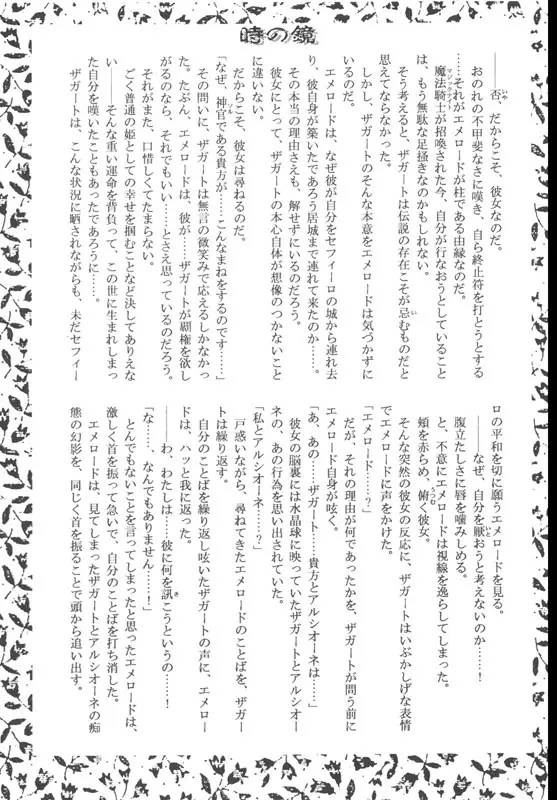 時の鏡
――否、だからこそ、彼女なのだ。
おのれの不甲斐なさに嘆き、自ら終止符を打とうとする
……それがエメロードが柱である由縁なのだ。
魔法騎士が招喚された今、自分が行なおうとしていること
は、もう無駄な足掻きなのかもしれない。
そう考えると、ザガートは伝説の存在こそが忌むものだと
思えてならなかった。
しかし、ザガートのそんな本意をエメロードは気づかずに
いるのだ。
エメロードは、なぜ彼が自分をセフィーロの城から連れ去
り、彼自身が築いたであろう居城まで連れて来たのか……。
その本当の理由さえも、解せずにいるのだろう。
彼女にとって、ザガートの本心自体が想像のつかないこと
に違いない。
だからこそ、彼女は尋ねるのだ。
「なぜ、神官である貴方が……こんなまねをするのです……」
その問いに、ザガートは無言の微笑みで応えるしかなかっ
た。たぶん、エメロードは、彼が……ザガートが覇権を欲し
がるのなら、それでもいい……とさえ思っているのだろう。
それがまた、口惜しくてたまらない。
ごく普通の姫としての幸せを掴むことなど決してありえな
い――そんな重い運命を背負って、この世に生まれしまっ
た自分を嘆いたこともあったであろうに……。
ザガートは、こんな状況に晒されながらも、未だセフィー
ロの平和を切に願うエメロードを見る。
――なぜ、自分を厭おうと考えないのか……！
腹立たしさに唇を噛みしめる。
と、不意にエメロードは視線を逸らしてしまった。
頬を赤らめ、俯く彼女。
そんな突然の彼女の反応に、ザガートはいぶかしげな表情
でエメロードに声をかけた。
「エメロード……？」
だが、それの理由が何であったかを、ザガートが問う前に
エメロード自身が呟く。
「あ、あの……ザガート……貴方とアルシオーネは……」
彼女の脳裏には水晶球に映っていたザガートとアルシオー
ネの、あの行為を思い出されていた。
「私とアルシオーネ……？」
戸惑いながら、尋ねてきたエメロードのことばを、ザガー
トは繰り返す。
自分のことばを繰り返し呟いたザガートの声に、エメロー
ドは、ハッと我に返った。
――わ、わたしは……彼に何を訊こうというの……！
「な……、なんでもありません……！」
とんでもないことを言ってしまったと思ったエメロードは、
激しく首を振って急いで、自分のことばを打ち消した。
エメロードは、見てしまったザガートとアルシオーネの痴
態の幻影を、同じく首を振ることで頭から追い出す。